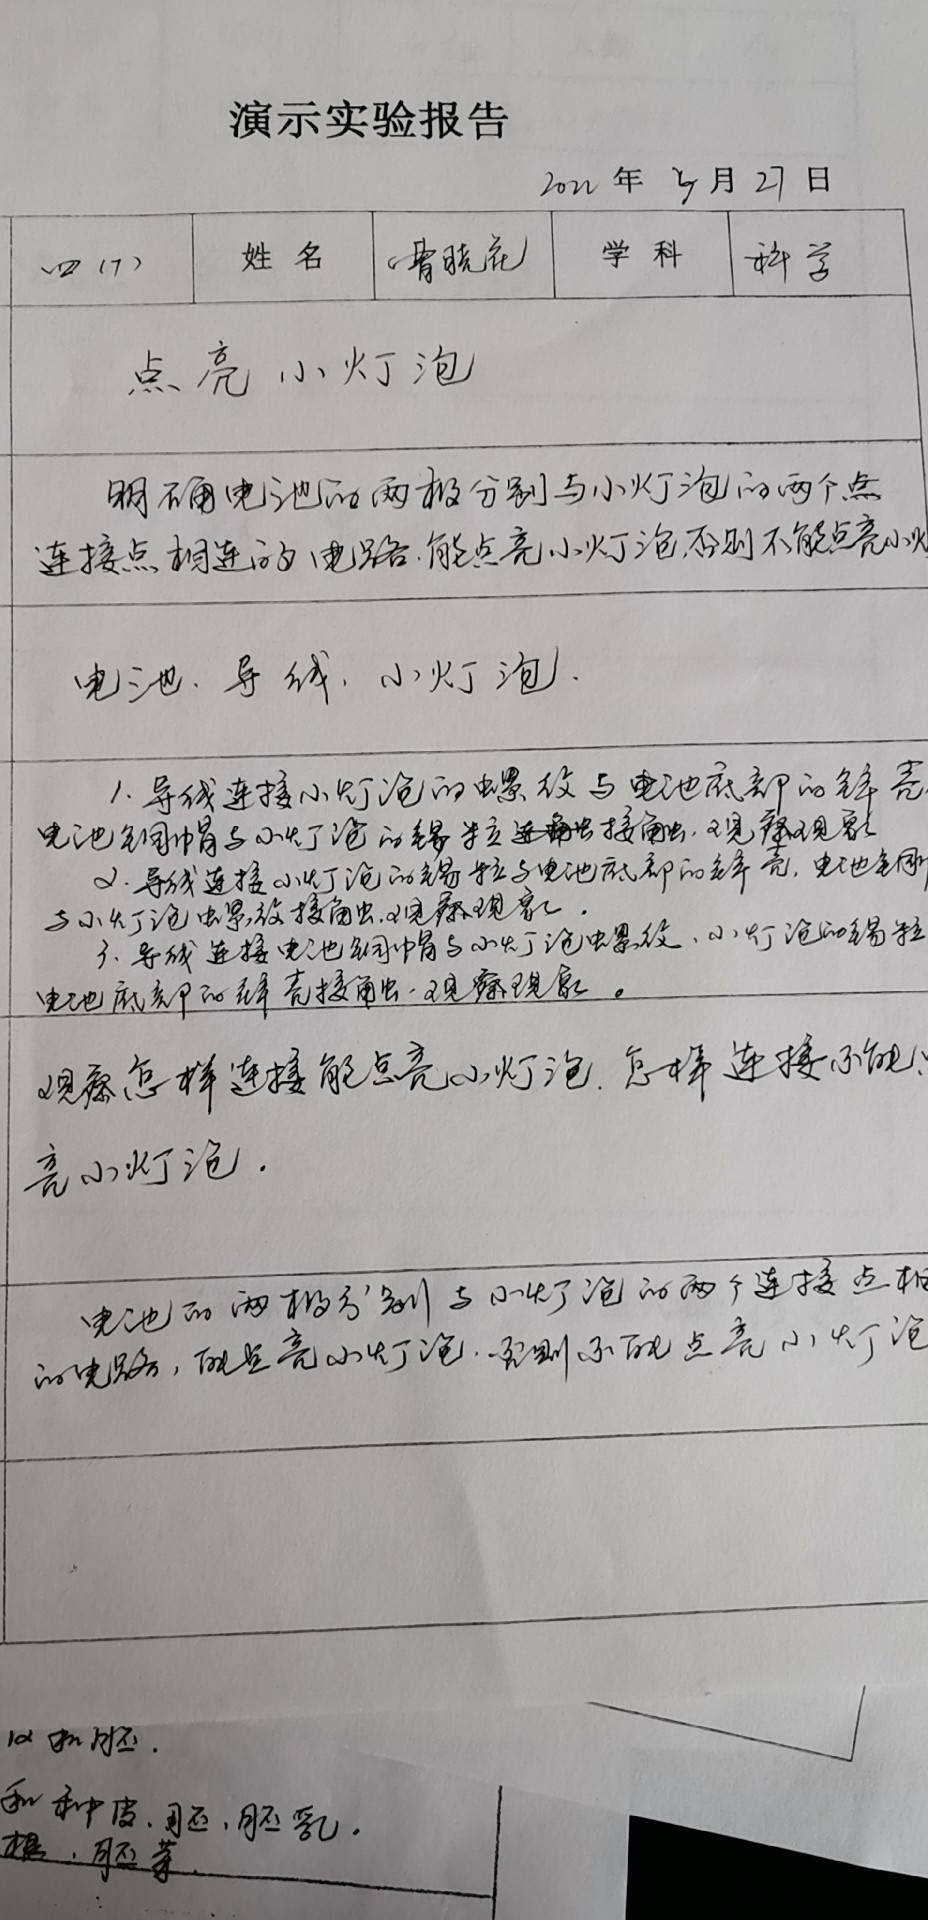 演示实验报告
2022年 5月27日
四(1) 姓名 晓花 学科 科学
点亮小灯泡
明确电池的两极分别与小灯泡的两个点
连接点相连的电路.能点亮小灯泡.否则不能点亮小灯
电池、导线、小灯泡.
1.导线连接小灯泡的螺纹与电池底部的锌壳
电池铜帽与小灯泡的锡粒接触.观察现象
2.导线连接小灯泡的锡粒与电池底部的锌壳,电池铜
与小灯泡螺纹接触.观察现象.
3.导线连接电池铜帽与小灯泡螺纹、小灯泡的锡粒
电池底部的锌壳接触.观察现象。
观察怎样连接能点亮小灯泡.怎样连接不能
亮小灯泡.
电池的两极分别与小灯泡的两个连接点相
的电路,能点亮小灯泡.否则不能点亮小灯泡
和胚.
和种皮、胚、胚乳.
根、胚芽.